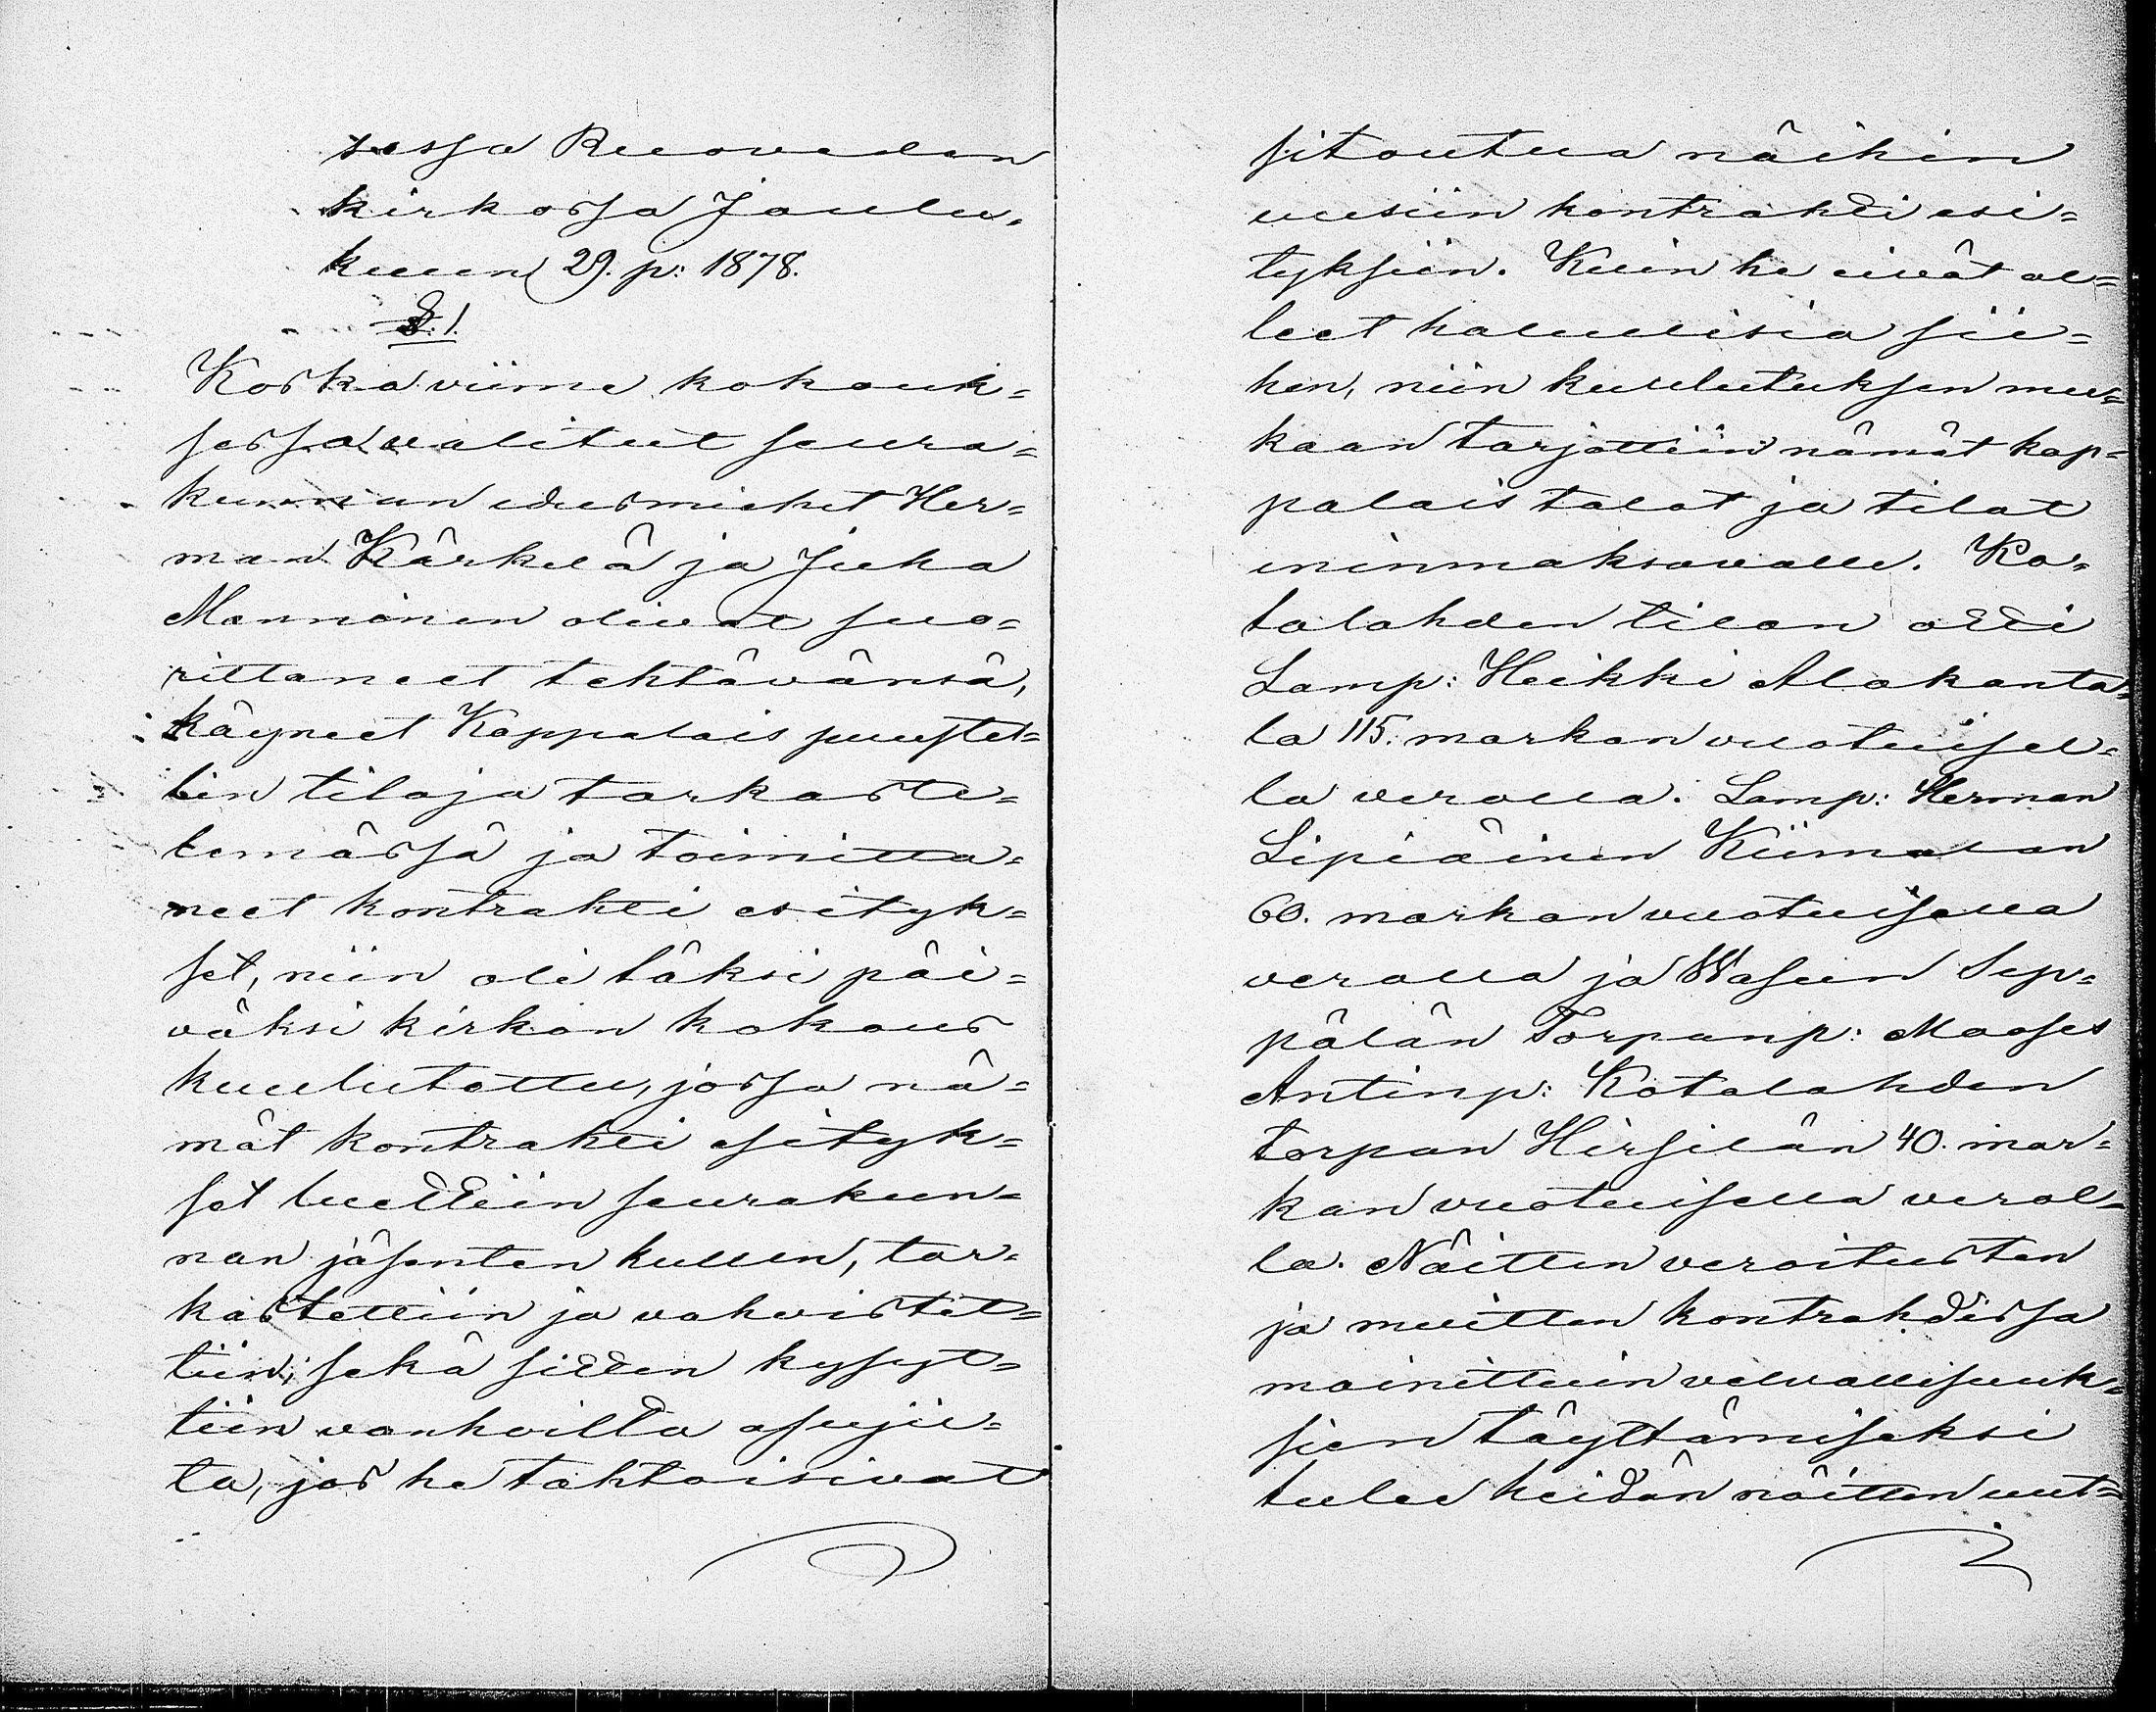 sessa Ruoveden
kirkossa Joulu-
kuun 29. p: 1878.
§. 1.
Koska viime kokouk=
sessa valitut seura=
kunnan edusmiehet Her=
man Kärkelä ja Juha
Manninen olivat suo=
rittaneet tehtävänsä,
käyneet Kappalais puustel=
lin tiloja tarkaste=
lemässä ja toimitta=
neet kontrahti esityk=
set, niin oli täksi päi=
väksi kirkon kokous
kuulutettu, jossa nä=
mät kontrahti esityk=
set luettiin seurakun=
nan jäsenten kullen, tar=
kastettiin ja vahvistet=
tiin; sekä sitten kysyt=
tiin vanhoilta asujil=
ta, jos he tahtoisivat
sitoutua näihin
uusiin kontrahti esi=
tyksiin. Kuin he eivät ol=
leet halullisia sii=
hen, niin kuulutuksen mu=
kaan tarjottiin nämät kap=
palais talot ja tilat
eninmaksavalle. Ko=
talahden tilan otti
Lamp: Heikki Alakanta=
la 115. markan vuotuisel=
la verolla. Lamp: Herman
Lipiäinen Kiimasan
60. markan vuotuisella
verolla ja Wasuin Sep=
pälän Torpanp: Mooses
Antinp: Kotalahden
torpan Hirsilän 40. mar=
kan vuotuisella verol=
la. Näitten veroitusten
ja muitten kontrahdissa
mainittuin velvollisuuk=
sien täyttämiseksi
tulee heidän näitten uut=